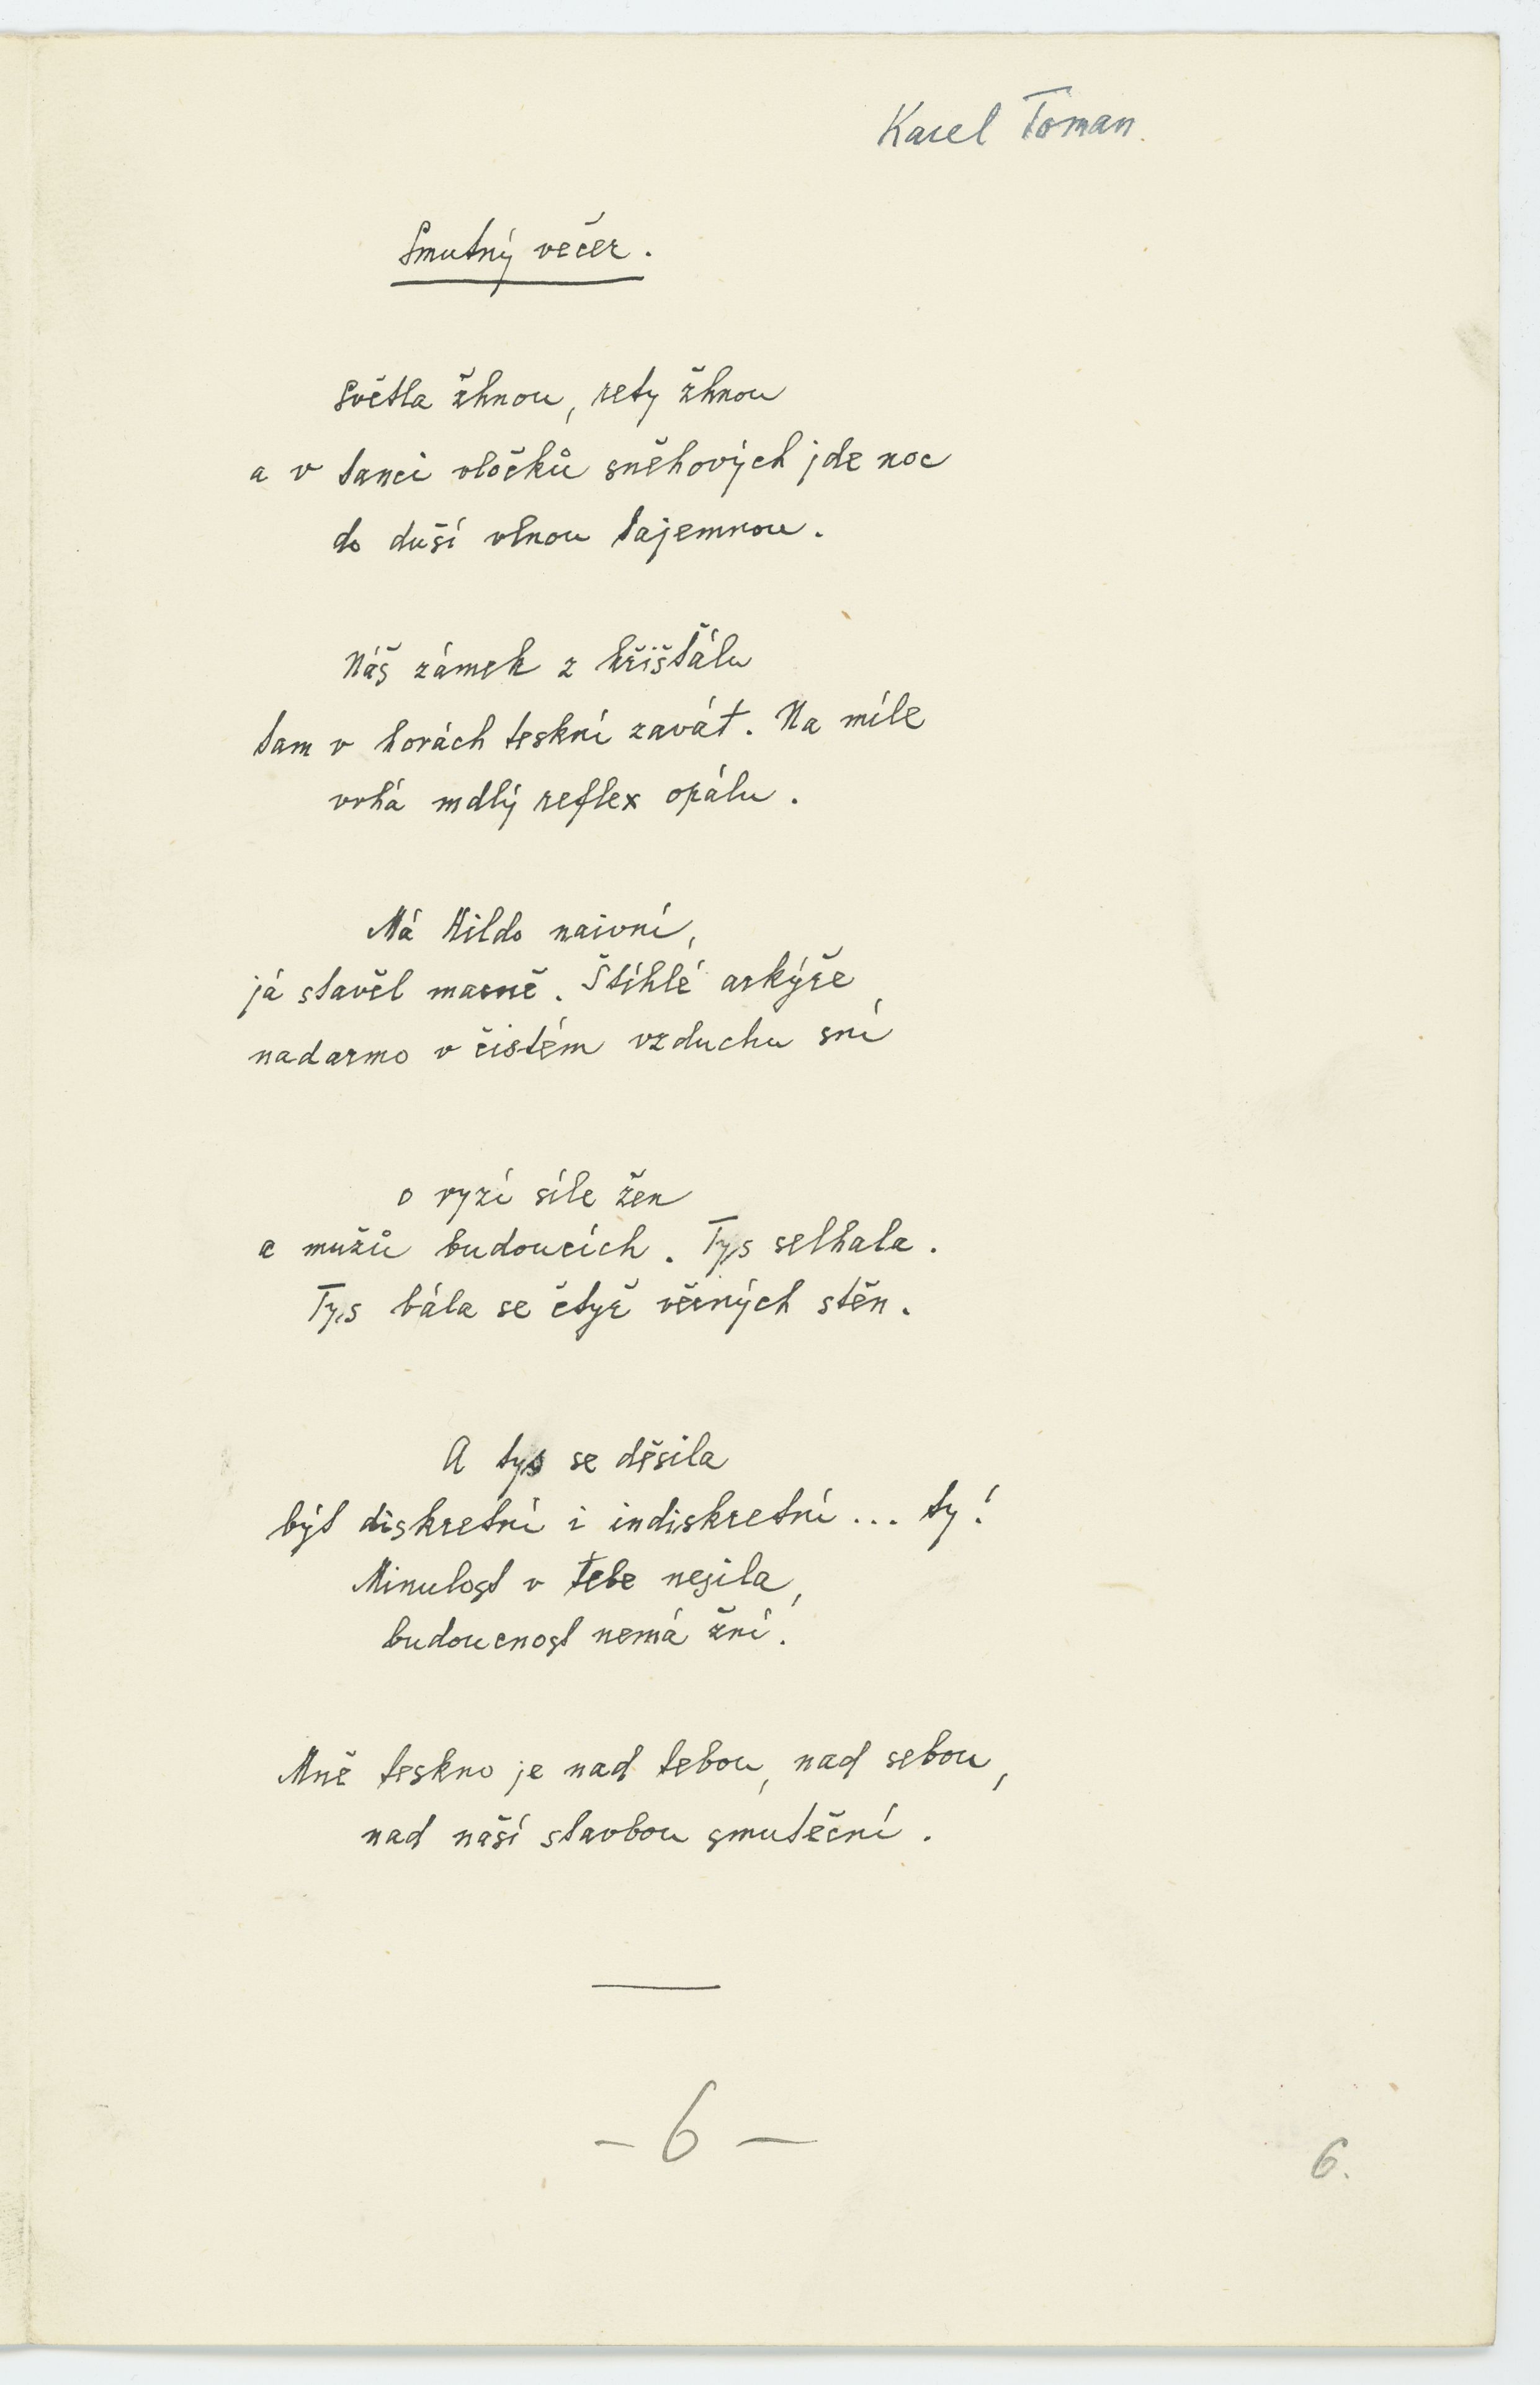 Karel Toman.
Smutný večer.
Světla žhnou, rety žhnou
a v tanci vločků sněhových jde noc
do duší vlnou tajemnou.
Náš zámek z křišťálu
tam v horách teskní zavát. Na míle
vrhá mdlý reflex opálu.
Má Hildo naivní,
já stavěl marně. Štíhlé arkýře
nadarmo v čistém vzduchu sní
o ryzí síle žen
a mužů budoucích. Tys selhala.
Tys bála se čtyř věčných stěn.
A tys se děsila
být diskretní i indiskretní... ty!
Minulost v tebe nesila,
budoucnost nemá žní.
Mně teskno je nad tebou, nad sebou,
nad naší stavbou smuteční.
- 6 -
6.